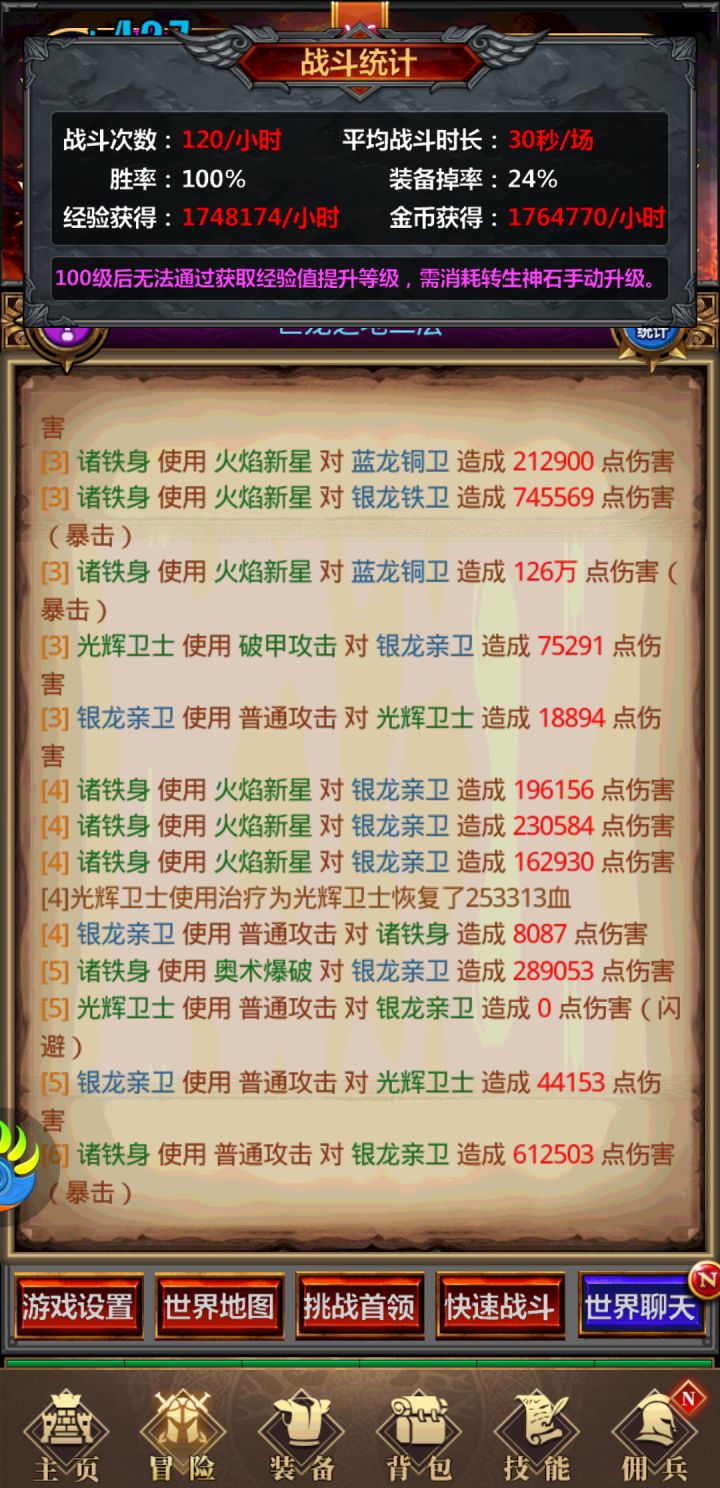 战斗统计
战斗次数：120/小时 平均战斗时长：30秒/场
胜率：100% 装备掉率：24%
经验获得：1748174/小时 金币获得：1764770/小时
100级后无法通过获取经验值提升等级，需消耗转生神石手动升级。
统计
害
[3] 诸铁身 使用 火焰新星 对 蓝龙铜卫 造成 212900 点伤害
[3] 诸铁身 使用 火焰新星 对 银龙铁卫 造成 745569 点伤害
（暴击）
[3] 诸铁身 使用 火焰新星 对 蓝龙铜卫 造成 126万 点伤害（
暴击）
[3] 光辉卫士 使用 破甲攻击 对 银龙亲卫 造成 75291 点伤
害
[3] 银龙亲卫 使用 普通攻击 对 光辉卫士 造成 18894 点伤
害
[4] 诸铁身 使用 火焰新星 对 银龙亲卫 造成 196156 点伤害
[4] 诸铁身 使用 火焰新星 对 银龙亲卫 造成 230584 点伤害
[4] 诸铁身 使用 火焰新星 对 银龙亲卫 造成 162930 点伤害
[4]光辉卫士使用治疗为光辉卫士恢复了253313血
[4] 银龙亲卫 使用 普通攻击 对 诸铁身 造成 8087 点伤害
[5] 诸铁身 使用 奥术爆破 对 银龙亲卫 造成 289053 点伤害
[5] 光辉卫士 使用 普通攻击 对 银龙亲卫 造成 0 点伤害（闪
避）
[5] 银龙亲卫 使用 普通攻击 对 光辉卫士 造成 44153 点伤
害
[6] 诸铁身 使用 普通攻击 对 银龙亲卫 造成 612503 点伤害
（暴击）
游戏设置 世界地图 挑战首领 快速战斗 世界聊天 N
N
主页 冒险 装备 背包 技能 佣兵